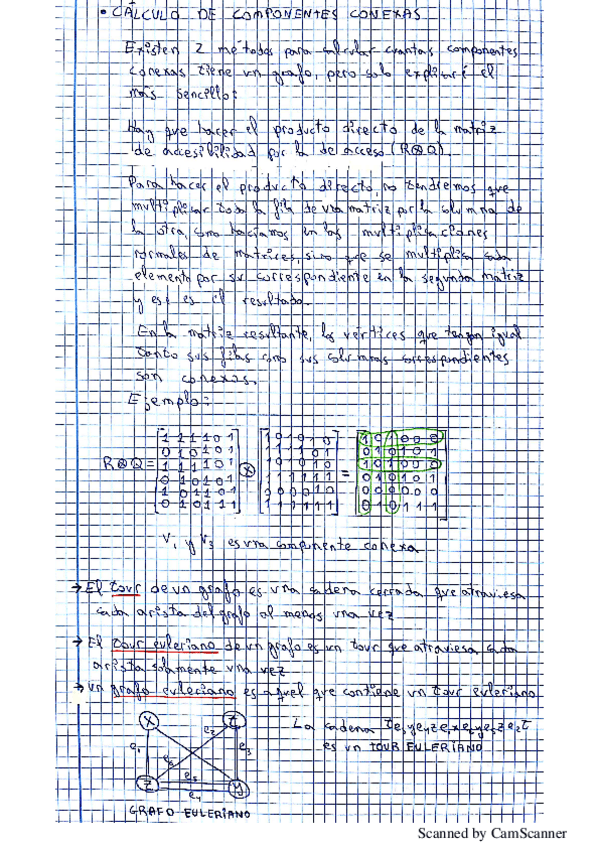 • CÁLCULO DE COMPONENTES CONEXAS
Existen 2 métodos para calcular cuantas componentes
conexas tiene un grafo, pero solo explicaré el
más sencillo:
Hay que hacer el producto directo de la matriz
de accesibilidad por la de acceso (R⊗Q).
Para hacer el producto directo, no tendremos que
multiplicar toda la fila de una matriz por la columna de
la otra, como hacíamos en las multiplicaciones
normales de matrices, sino que se multiplica cada
elemento por su correspondiente en la segunda matriz
y ese es el resultado.
En la matriz resultante, los vértices que tengan igual
tanto sus filas como sus columnas correspondientes
son conexas.
Ejemplo:
R⊗Q = ⊗ =
V₁ y V₃ es una componente conexa
→ El tour de un grafo es una cadena cerrada que atraviesa
cada arista del grafo al menos una vez
→ El tour euleriano de un grafo es un tour que atraviesa cada
arista solamente una vez
→ Un grafo euleriano es aquel que contiene un tour euleriano
X t La cadena
e₂ es un TOUR EULERIANO
e₁ e₃
e₅
z y
e₄
GRAFO EULERIANO
Scanned by CamScanner